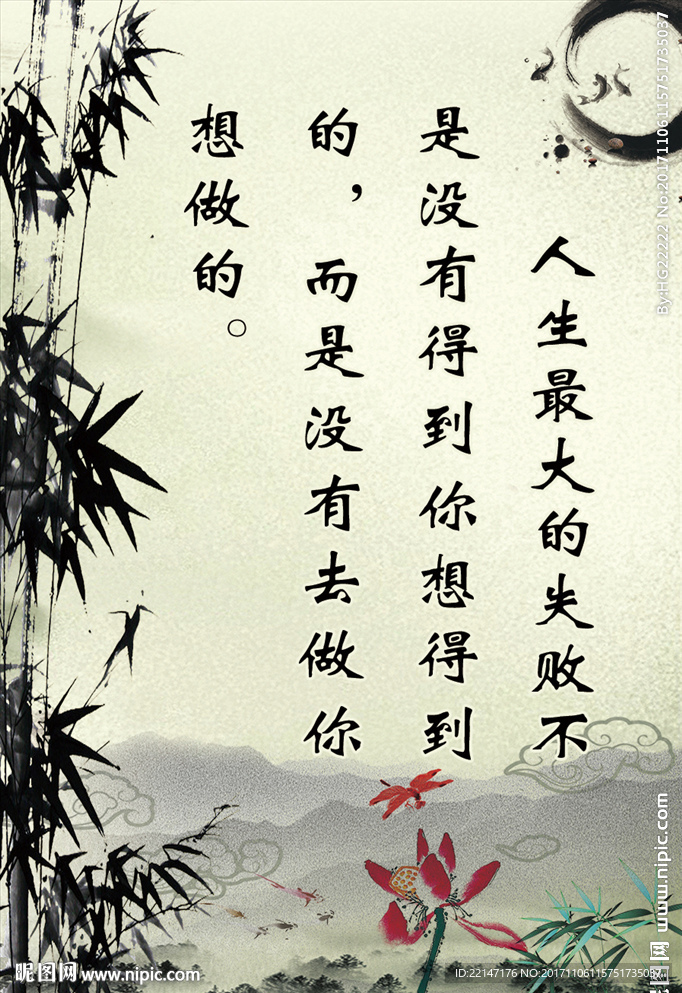 人生最大的失败不
是没有得到你想得到
的，而是没有去做你
想做的。
By:HG22222 No:20171106115751735037
昵图网 www.nipic.com
昵图网 www.nipic.com
ID:22147176 NO:20171106115751735037